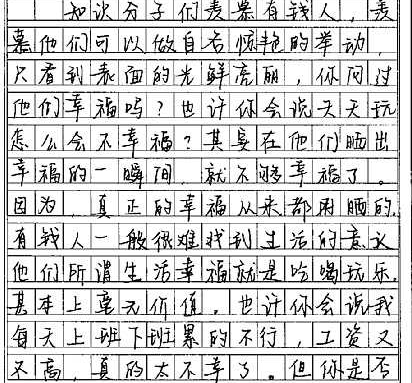 知识分子们羡慕有钱人，羡
慕他们可以做自若惊艳的举动，
只看到表面的光鲜亮丽，你问过
他们幸福吗？也许你会说天天玩
怎么会不幸福？其实在他们晒出
幸福的一瞬间，就不够幸福了。
因为，真正的幸福从来都用晒的，
有钱人一般很难找到生活的意义
他们所谓生活幸福就是吃喝玩乐，
基本上毫无价值。也许你会说我
每天上班下班累的不行，工资又
不高，真的太不幸了。但你是否